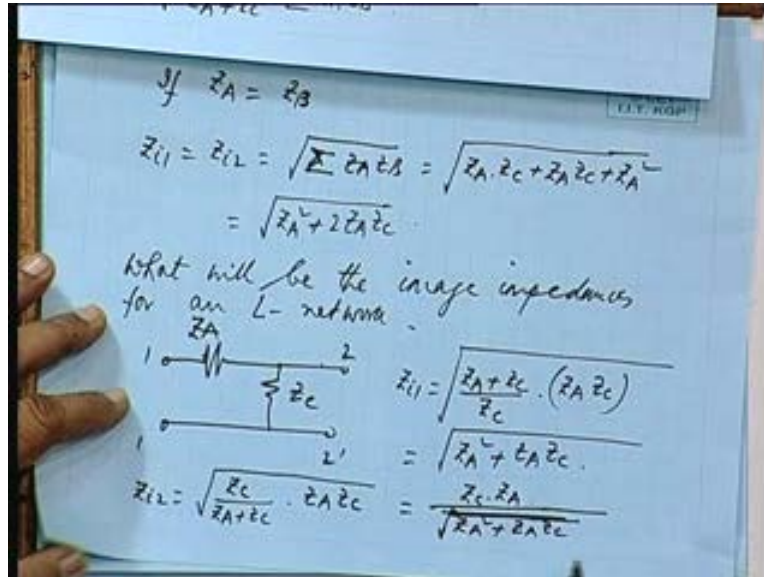 If Z_A = Z_B
Z_i1 = Z_i2 = √(Σ Z_A Z_B) = √(Z_A . Z_C + Z_A Z_C + Z_A²)
= √(Z_A² + 2 Z_A Z_C) .
What will be the image impedances
for an L- network .
Z_A
1 2
Z_C
1 2'
Z_i1 = √((Z_A + Z_C)/Z_C . (Z_A Z_C))
= √(Z_A² + Z_A Z_C) .
Z_i2 = √(Z_C/(Z_A + Z_C) . Z_A Z_C) = Z_C . Z_A / √(Z_A² + Z_A Z_C)
I.I.T. KGP